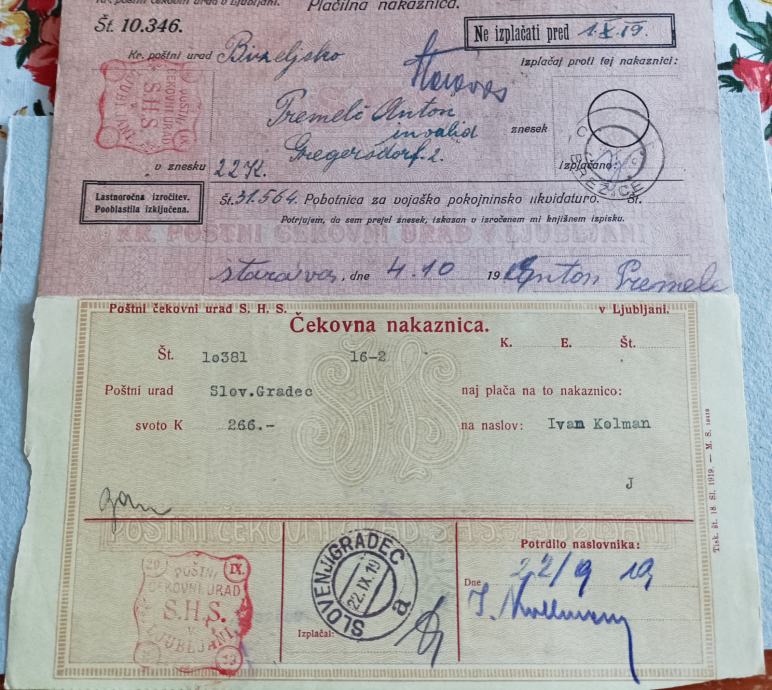 Kr. poštni čekovni urad v Ljubljani.
Plačilna nakaznica.
Št. 10.346.
Ne izplačati pred 1.X.19.
Kr. poštni urad Bizeljsko
izplačaj proti tej nakaznici:
Staravas
POŠTNI ČEKOVNI URAD S.H.S. V LJUBLJANI
Premelč Anton
invalid
znesek
Gregersdorf 2.
izplačano:
BREŽICE
v znesku 227K.
Lastnoročna izročitev.
Pooblastila izključena.
Št. 31.564. Pobotnica za vojaško pokojninsko likvidaturo. Št.
Potrjujem, da sem prejel znesek, izkazan v izročenem mi knjižnem izpisku.
starava, dne 4.10 1919 Anton Premelč
Poštni čekovni urad S. H. S. v Ljubljani.
Čekovna nakaznica.
K. E. Št.
Št. 1o381 16-2
Poštni urad Slov.Gradec naj plača na to nakaznico:
svoto K 266.- na naslov: Ivan Kolman
J
POŠTNI ČEKOVNI URAD S.H.S. V LJUBLJANI
Tisk. št. 18. Sl. 1919. — M. S.
20 IX. 19
POŠTNI ČEKOVNI URAD S.H.S. V LJUBLJANI
SLOVENJGRADEC
22.IX.19
a
Izplačal:
Potrdilo naslovnika:
Dne 22/9 19